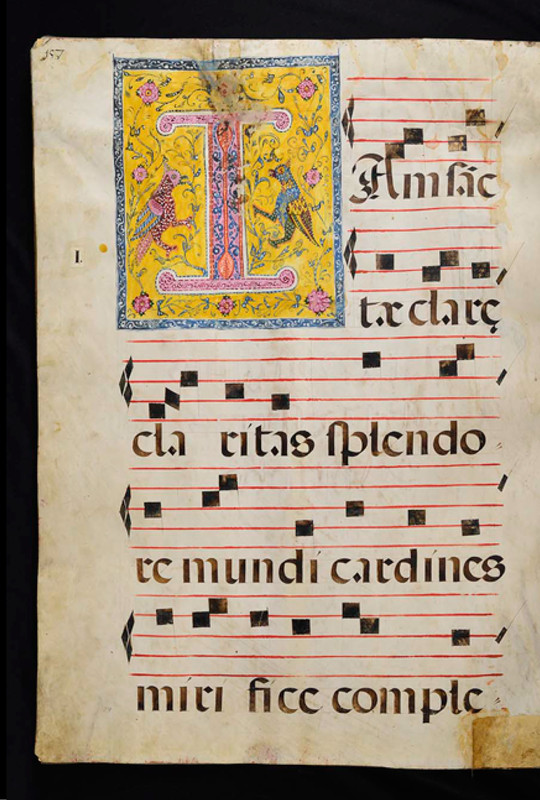 157
I.
I Am ſāc
tæ clarę
cla ritas ſplendo
re mundi cardines
miri fice comple